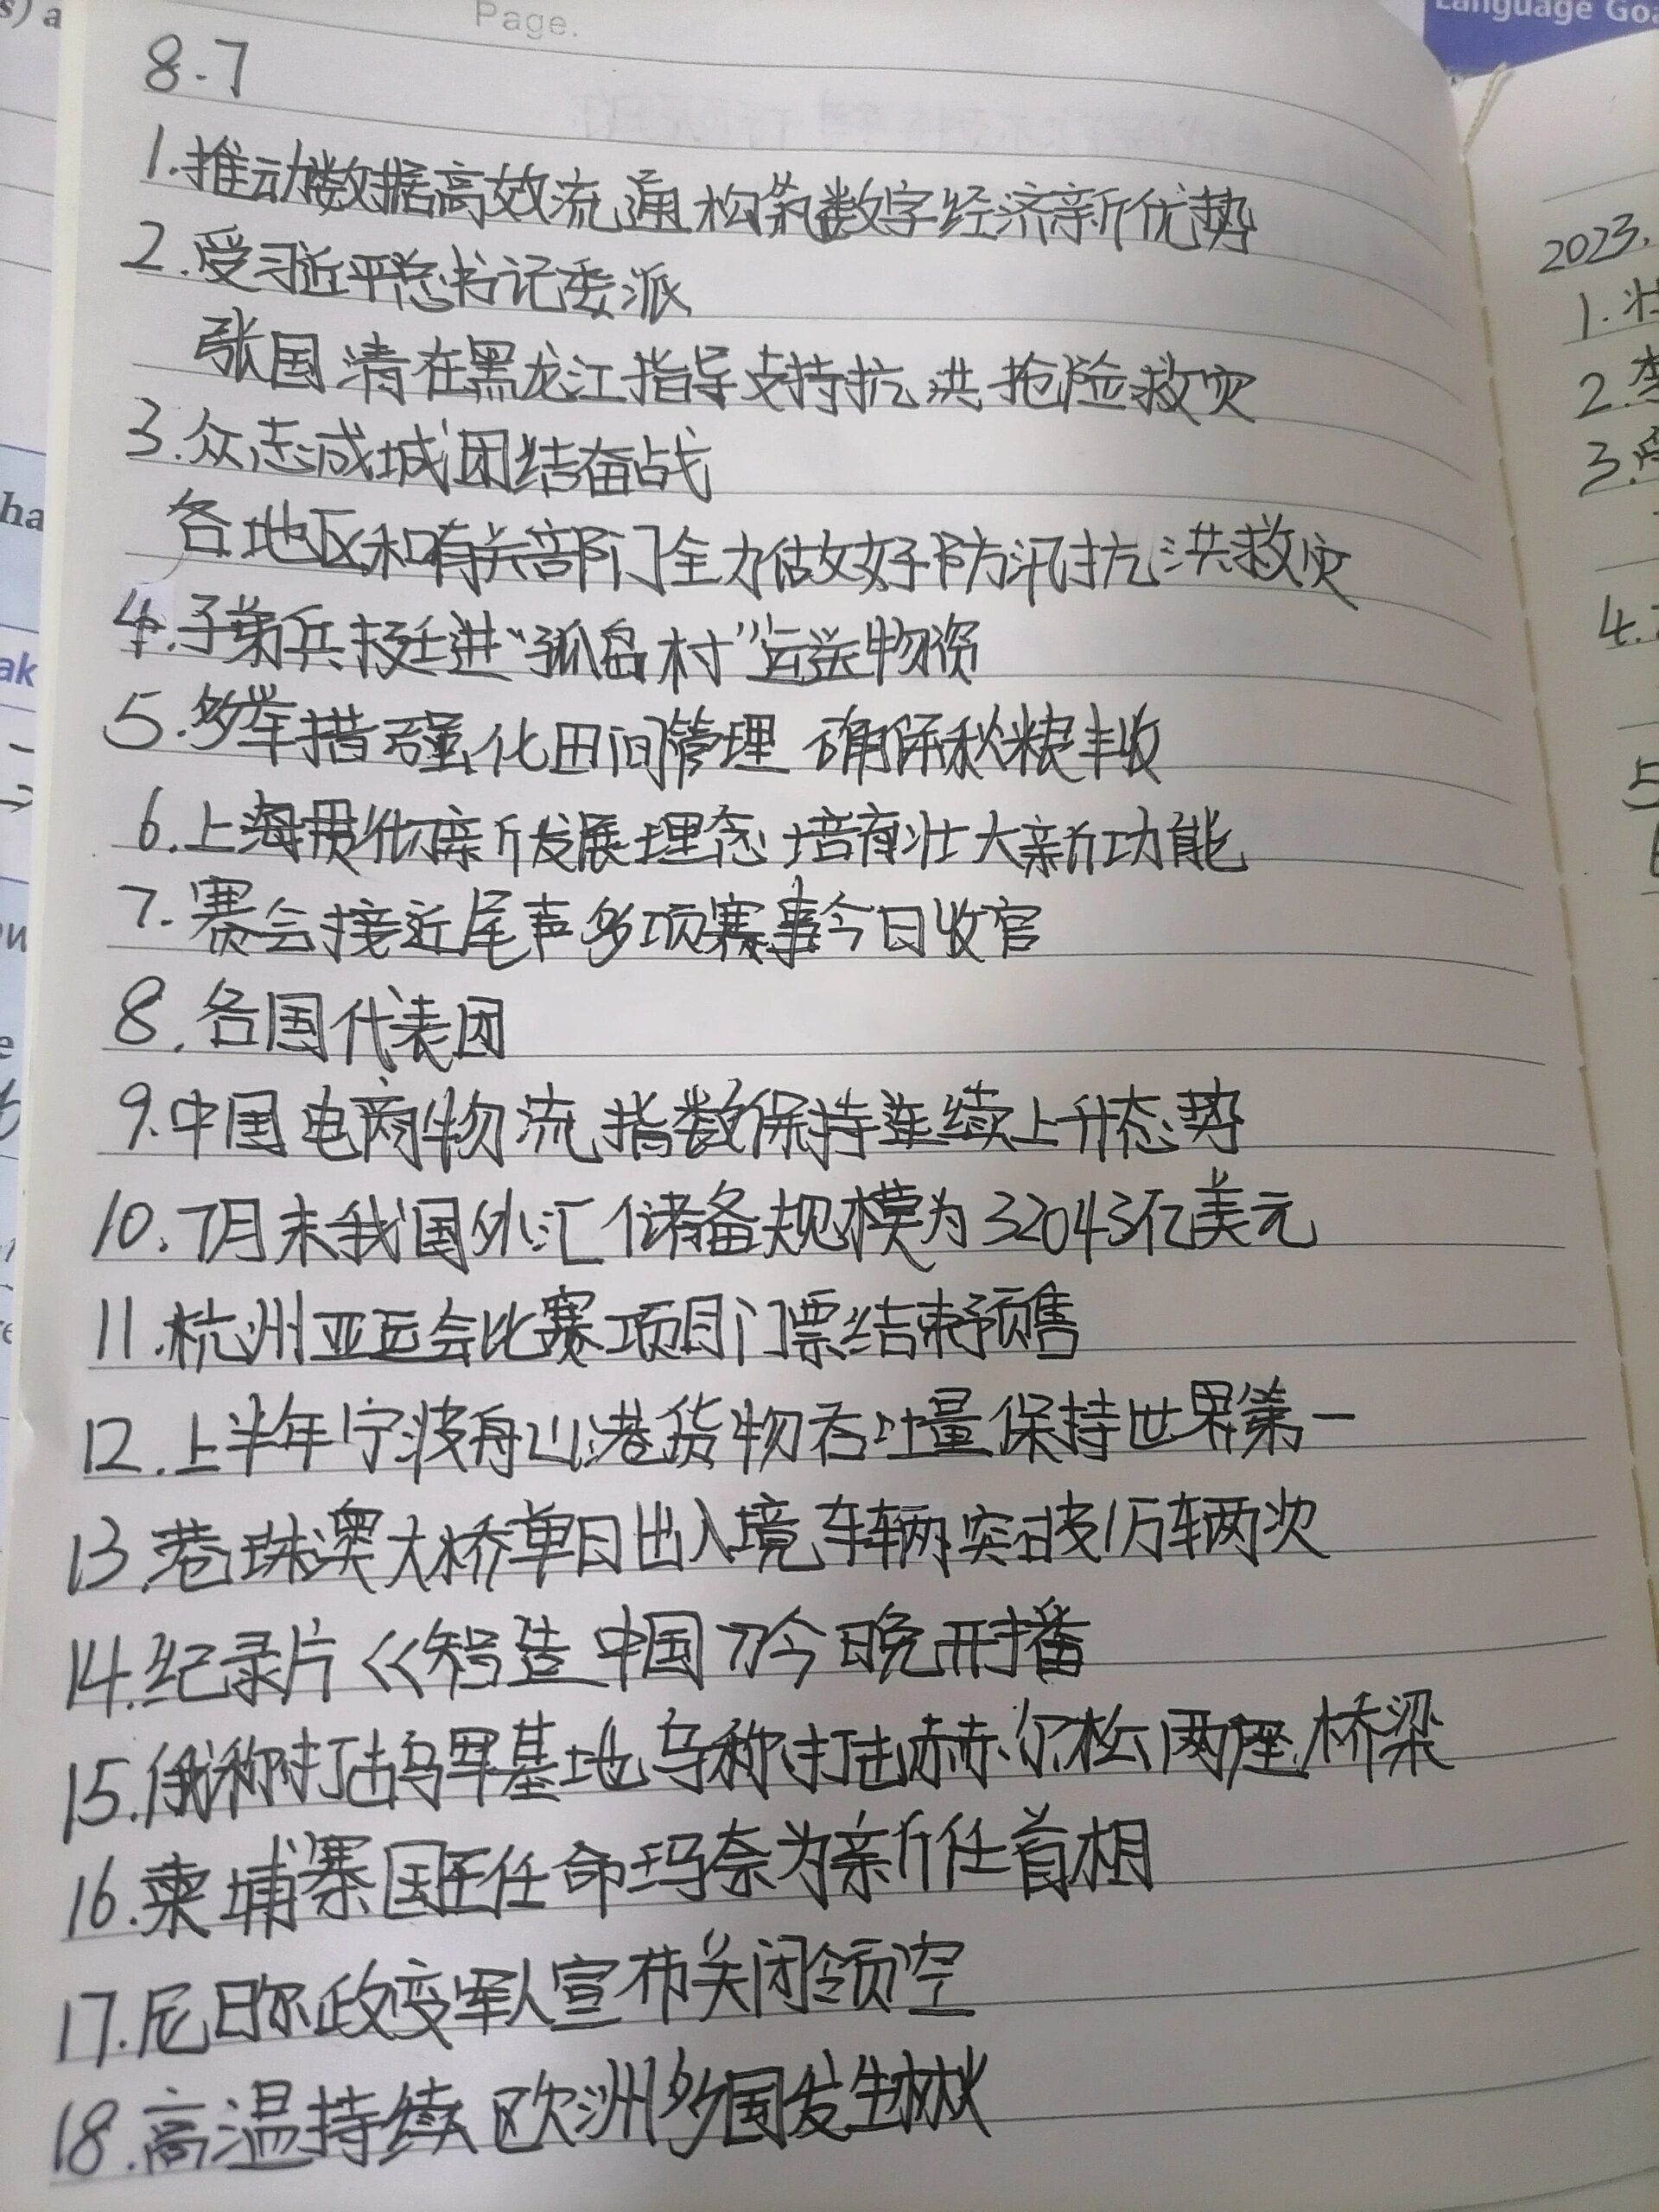 Page.
Language Goa
8.7
1.推动数据高效流通构筑数字经济新优势
2.受习近平总书记委派
张国清在黑龙江指导支持抗洪抢险救灾
3.众志成城团结奋战
各地区和有关部门全力做好防汛抗洪救灾
4.子弟兵挺进“孤岛村”运送物资
5.多举措强化田间管理 确保秋粮丰收
6.上海贯彻新发展理念培育壮大新功能
7.赛会接近尾声多项赛事今日收官
8.各国代表团
9.中国电商物流指数保持连续上升态势
10.7月末我国外汇储备规模为32043亿美元
11.杭州亚运会比赛项目门票结束预售
12.上半年宁波舟山港货物吞吐量保持世界第一
13.港珠澳大桥单日出入境车辆突破1万车辆次
14.纪录片《智造中国》今晚开播
15.俄称打击乌军基地乌称打击赫尔松两座桥梁
16.柬埔寨国王任命玛奈为新任首相
17.尼日尔政变军人宣布关闭领空
18.高温持续 欧洲多国发生林火
2023.
1.壮
2.李
3.
4.
5